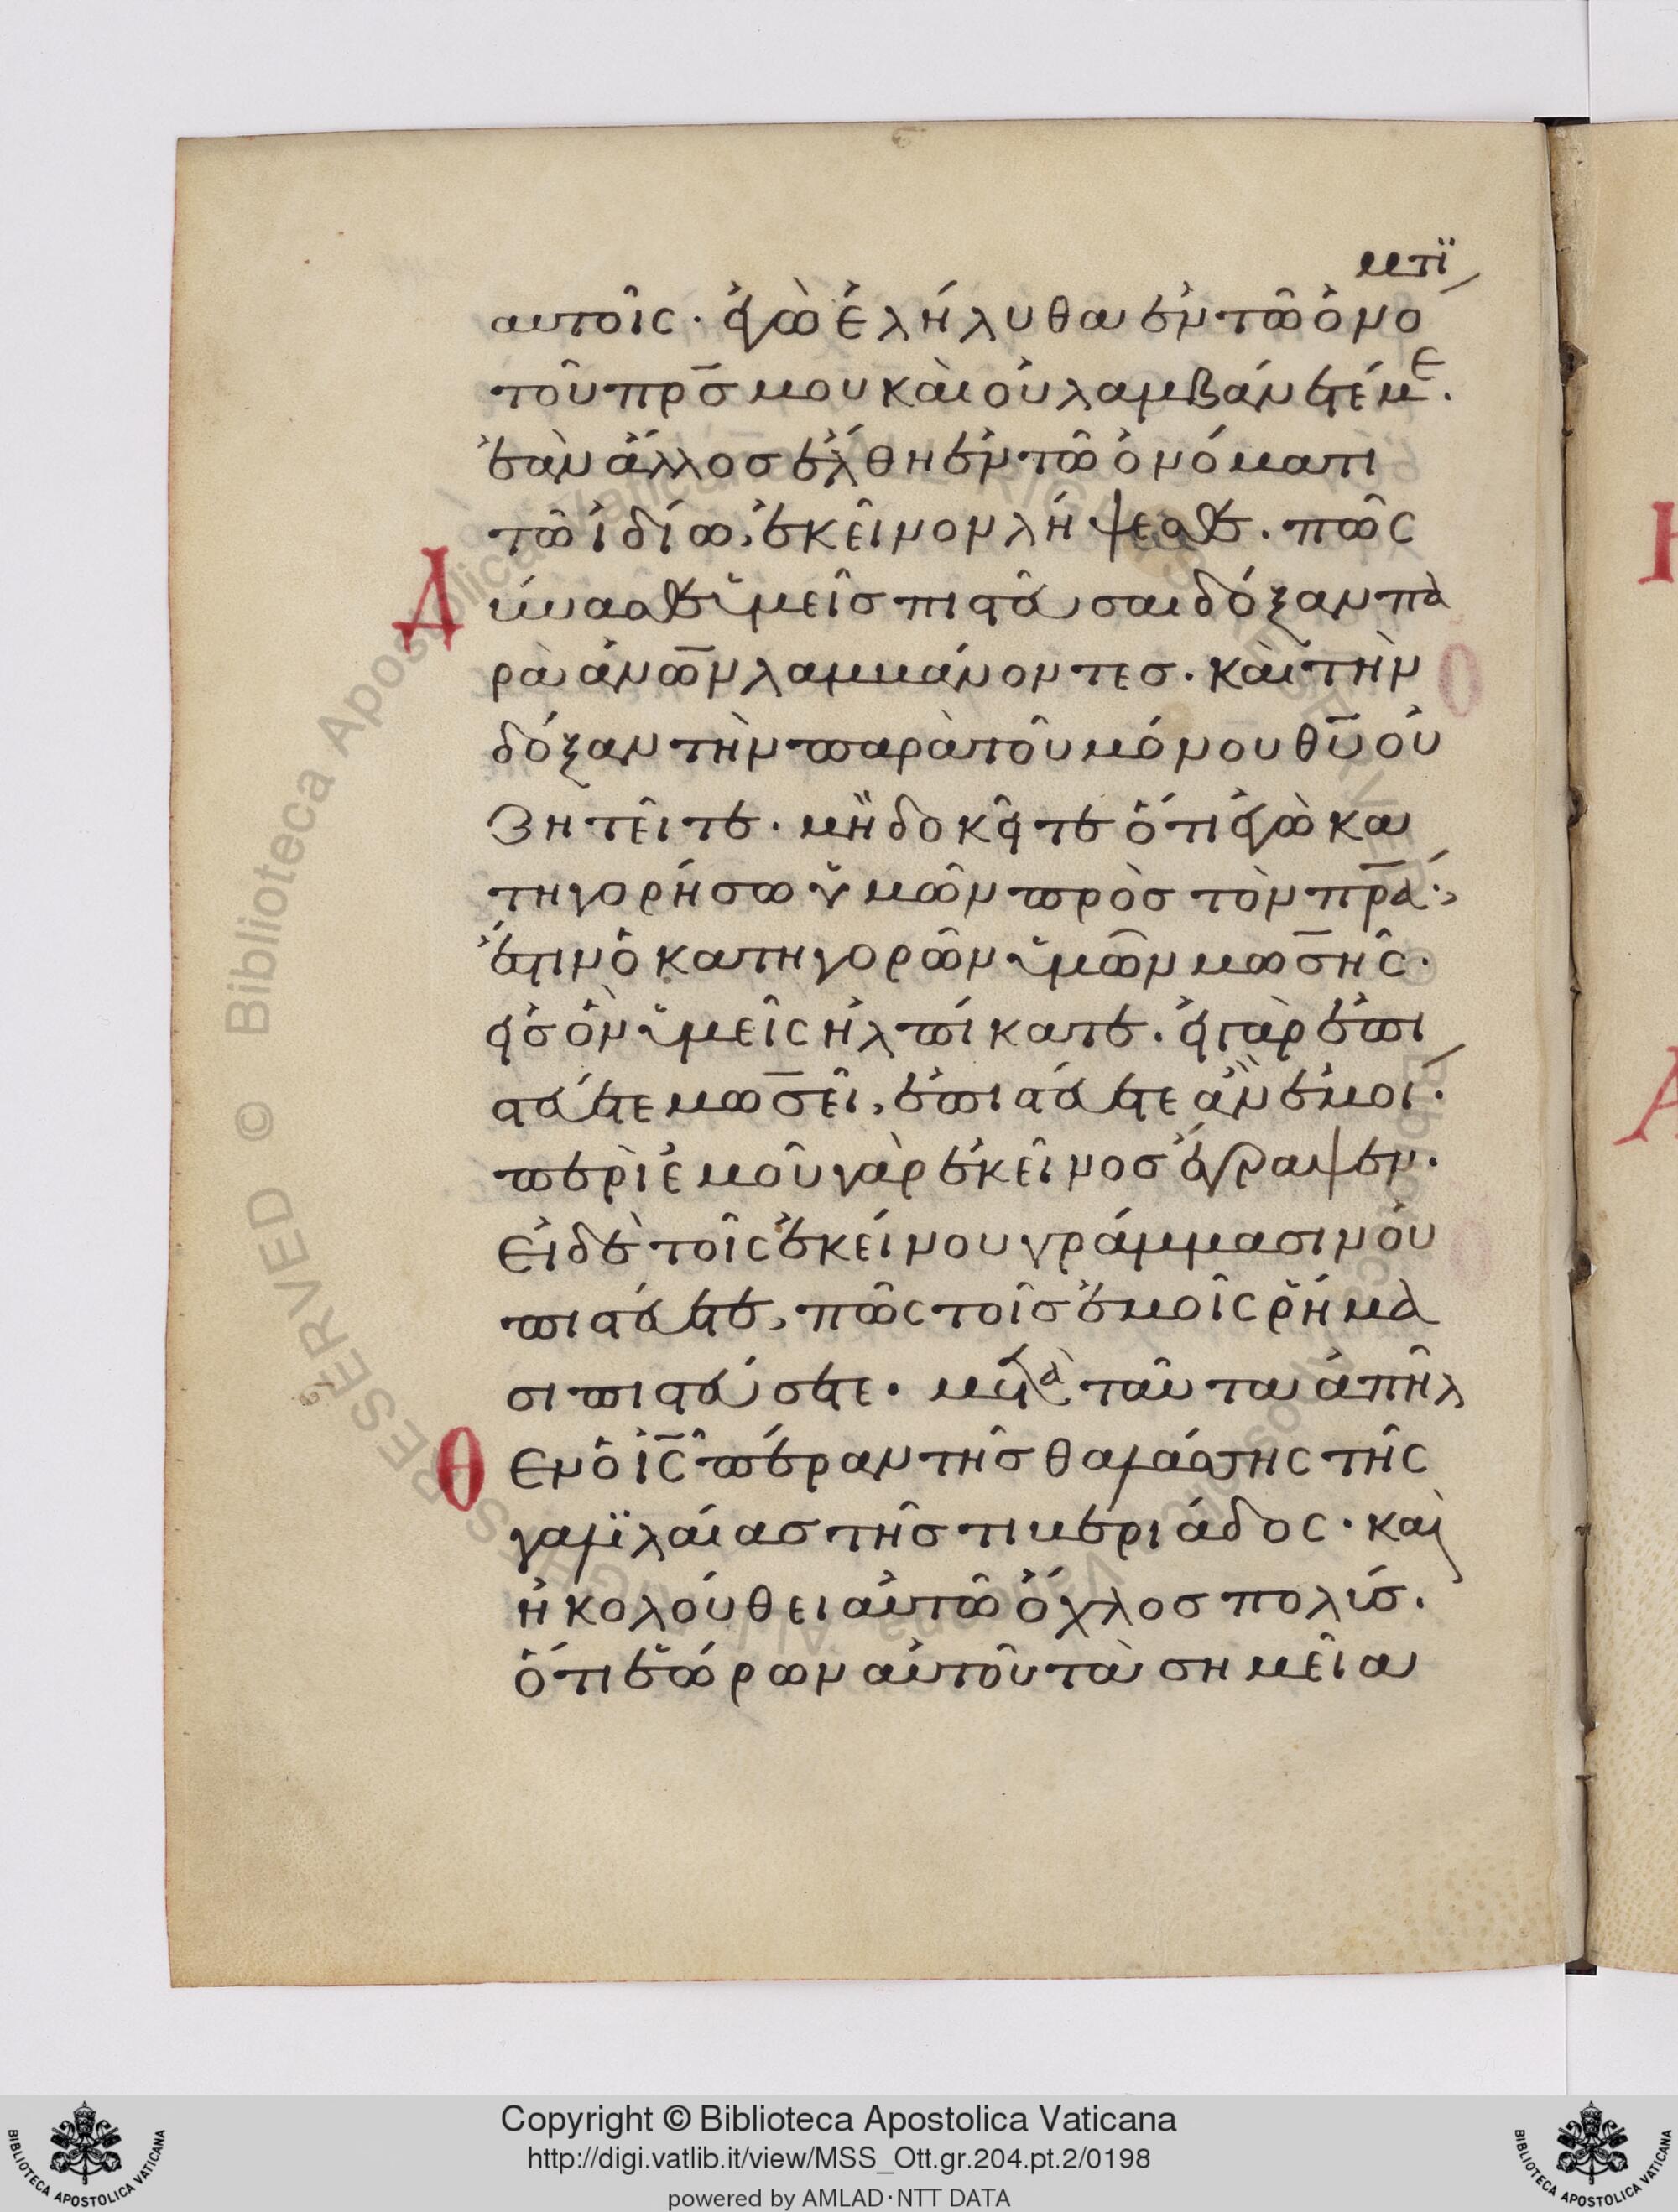 ματϊ
αυτοῖς· ἐγὼ ἐλήλυθα ἐν τῶ ὀνο
τοῦ πρ̅σ μου καὶ οὐ λαμβάνετέ με.
ἐὰν ἄλλος ἔλθη ἐν τῶ ὀνόματι
τῶ ἰδίω, ἐκεῖνον λήψεσθε. πῶς
Δύνασθε ὑμεῖς πιστεύσαι δόξαν πα
ρὰ ἀν̅ω̅ν λαμβάνοντες. καὶ τὴν
δόξαν τὴν παρὰ τοῦ μόνου θ̅υ̅ οὐ
ζητεῖτε. μὴ δοκεῖτε ὅτι ἐγὼ κα
τηγορήσω ὑμῶν πρὸς τὸν πρ̅α·,
ἔστιν ὁ κατηγορῶν ὑμῶν μωσῆς.
εἰς ὃν ὑμεῖς ἠλπίκατε. εἰ γὰρ ἐπι
στεύετε μωσεῖ, ἐπιστεύετε ἂν ἐμοί·
περὶ ἐμοῦ γὰρ ἐκεῖνος ἔγραψεν.
εἰ δὲ τοῖς ἐκείνου γράμμασιν οὐ
πιστεύετε, πῶς τοῖς ἐμοῖς ῥήμα
σι πιστεύσετε. μετὰ ταῦτα ἀπῆλ
Θεν ὁ ι̅ς̅ πέραν τῆς θαλάσσης τῆς
γαλιλαίας τῆς τιβεριάδος· καὶ
ἠκολούθει αὐτῶ ὄχλος πολύς.
ὅτι ἑώρων αὐτοῦ τὰ σημεῖα
© Biblioteca Apostolica Vaticana ALL RIGHTS RESERVED
Copyright © Biblioteca Apostolica Vaticana
http://digi.vatlib.it/view/MSS_Ott.gr.204.pt.2/0198
powered by AMLAD·NTT DATA
BIBLIOTECA APOSTOLICA VATICANA
BIBLIOTECA APOSTOLICA VATICANA